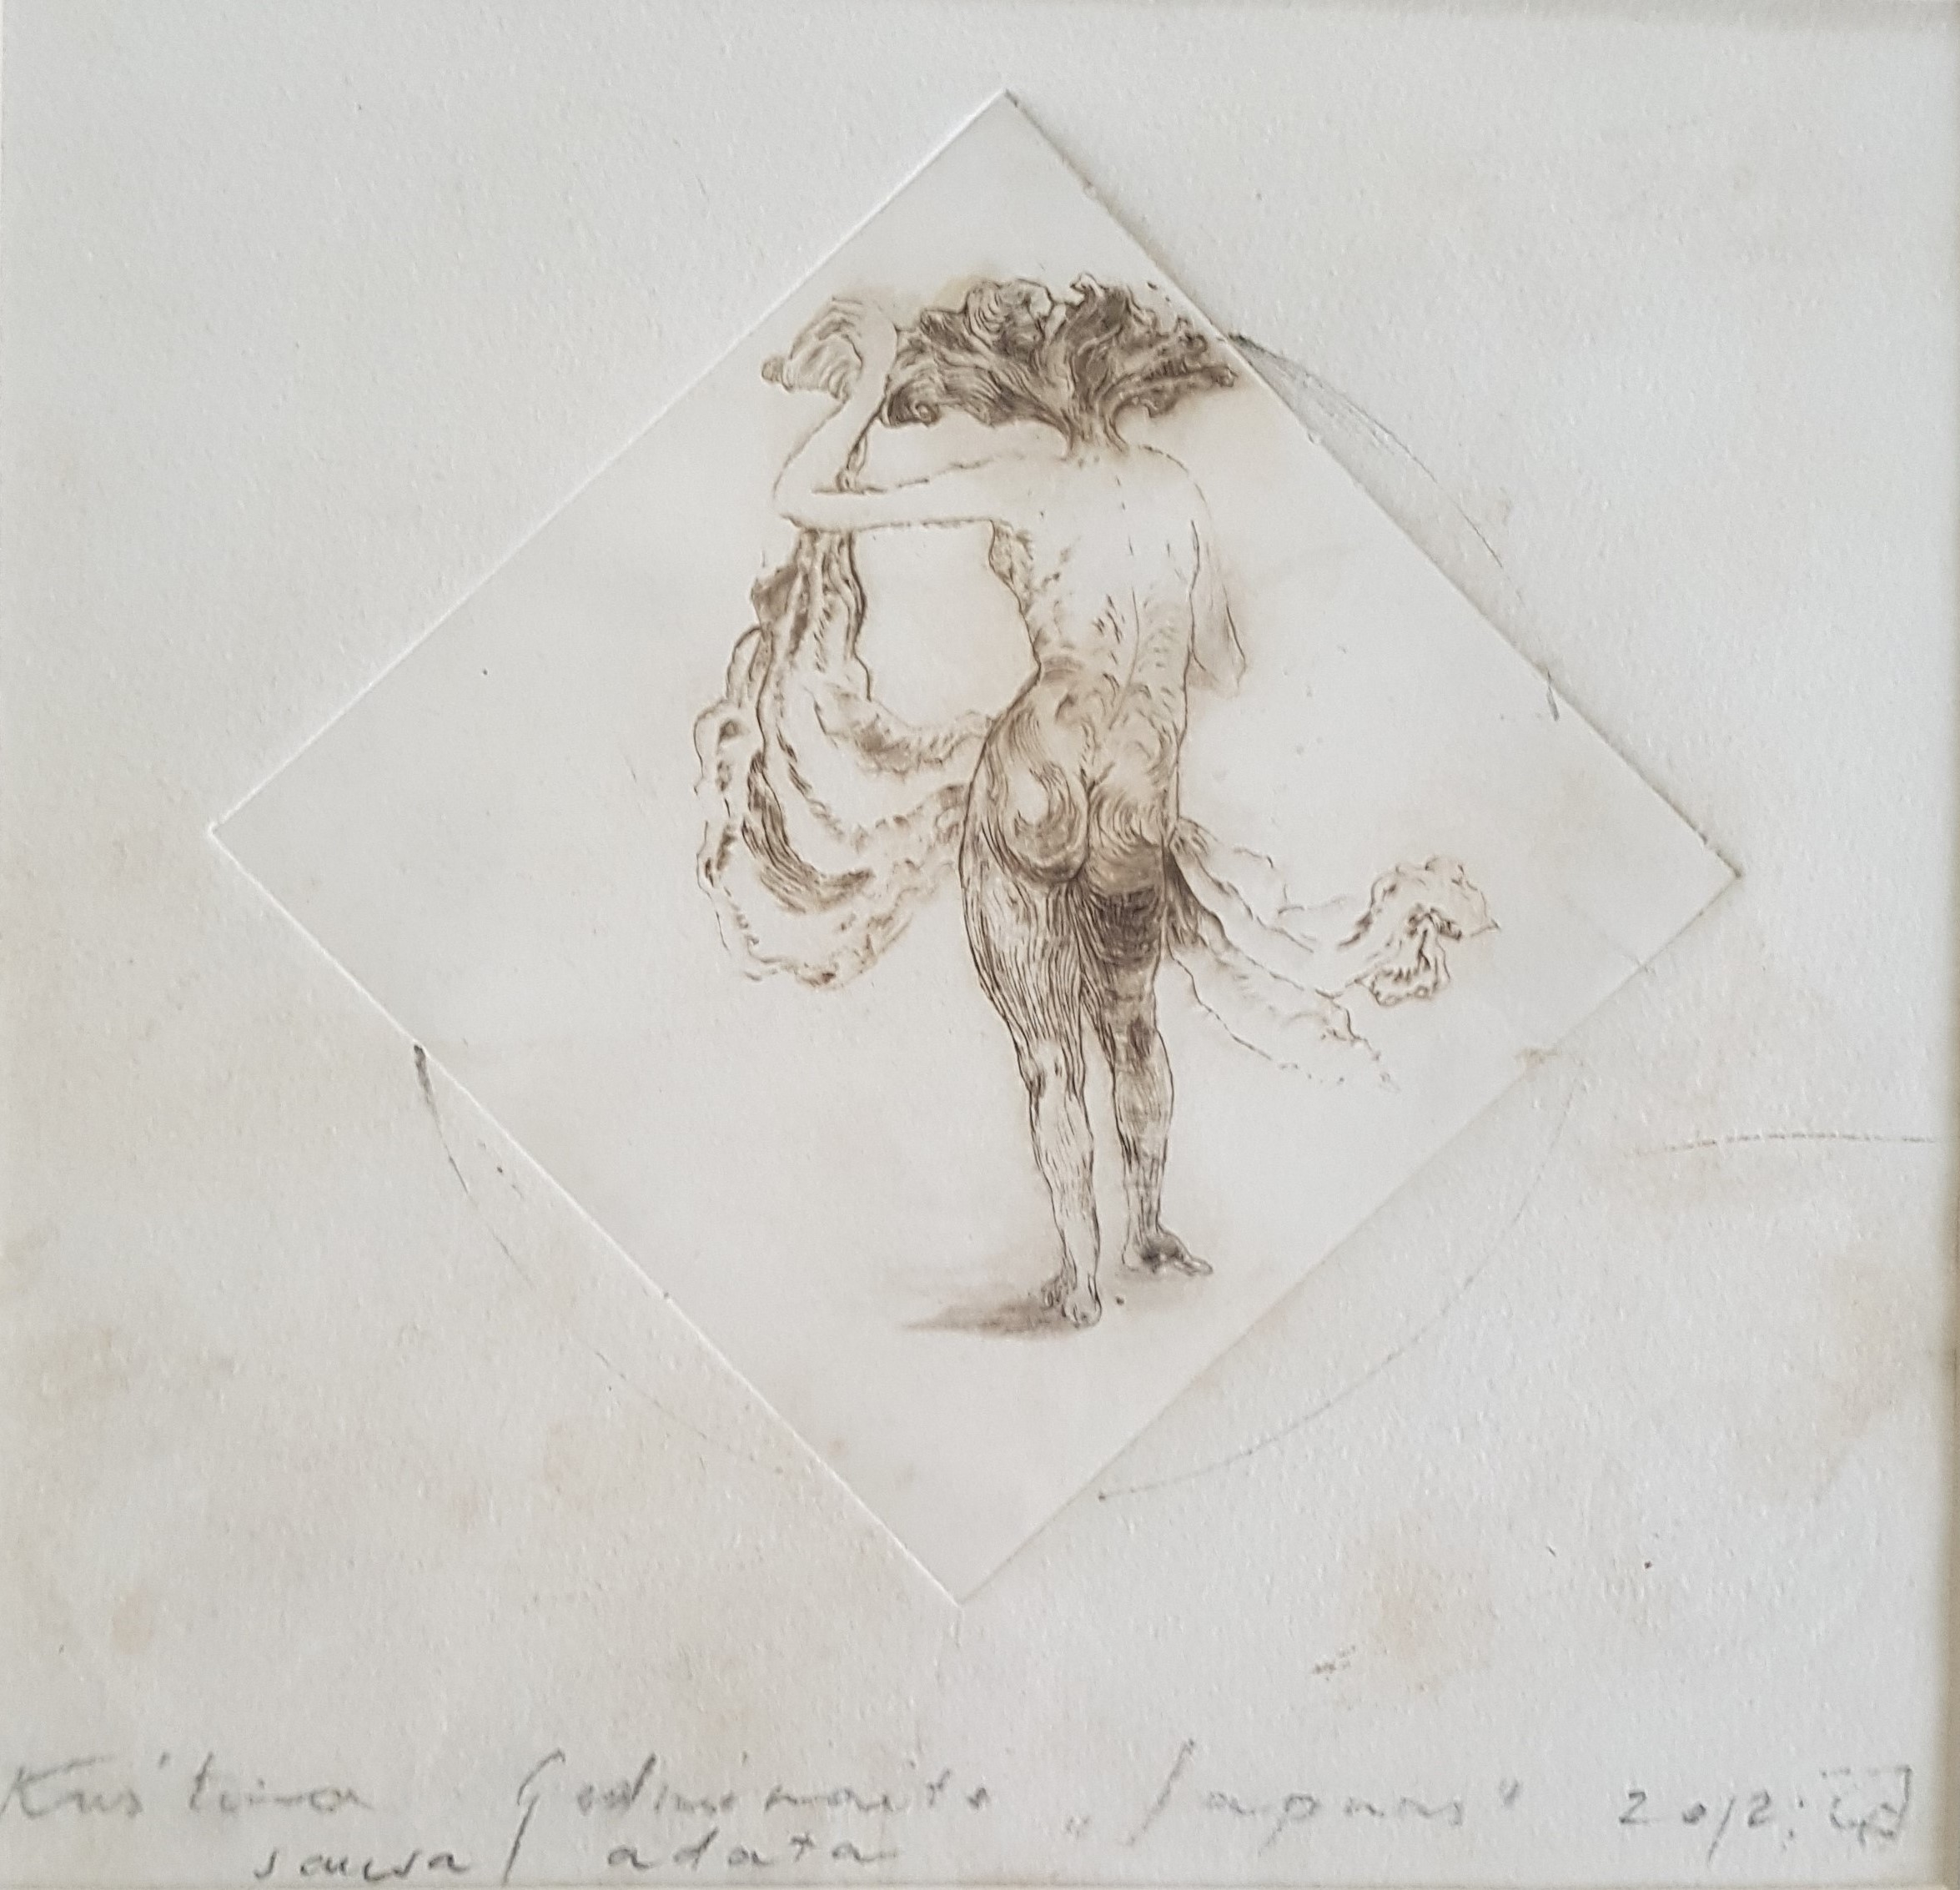 Kristina Gediminaitė „Sapnas" 2012
sausa adata